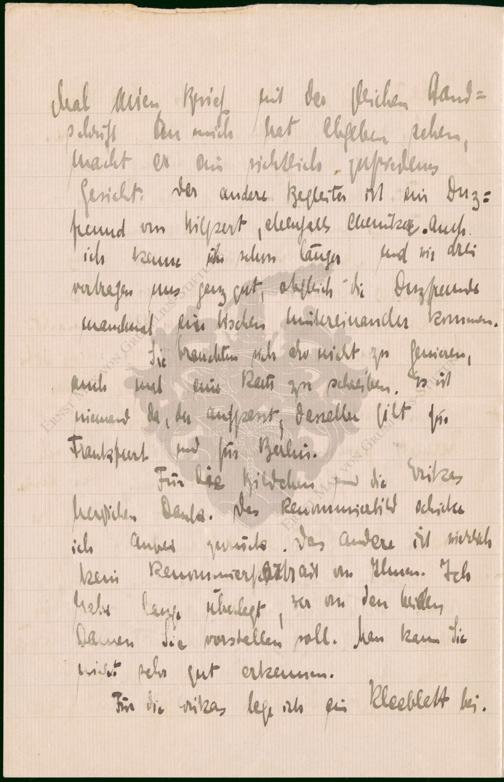 mal einen Brief mit der gleichen Hand=
schrift an mich hat abgeben sehen,
macht er ein sichtlich zufriedenes
Gesicht. Der andere Begleiter ist ein Duz=
freund von Hilpert, ebenfalls Chemiker. Auch
ich kenne ihn schon länger und wir drei
vertragen uns ganz gut, obgleich die Duzfreunde
manchmal ein bischen hintereinander kommen.
Sie brauchten sich also nicht zu genieren,
auch mal eine Karte zu schreiben. Es ist
niemand da, der aufpasst, dasselbe gilt für
Frankfurt und für Berlin.
Für die Bildchen und die Erikas
herzlichen Dank. Das Renommierbild schicke
ich anbei zurück. Das andere ist wirklich
kein Renommierportrait von Ihnen. Ich
habe lange überlegt, wer von den beiden
Damen Sie vorstellen soll. Man kann Sie
nicht sehr gut erkennen.
Für die Erikas lege ich ein Kleeblatt bei.